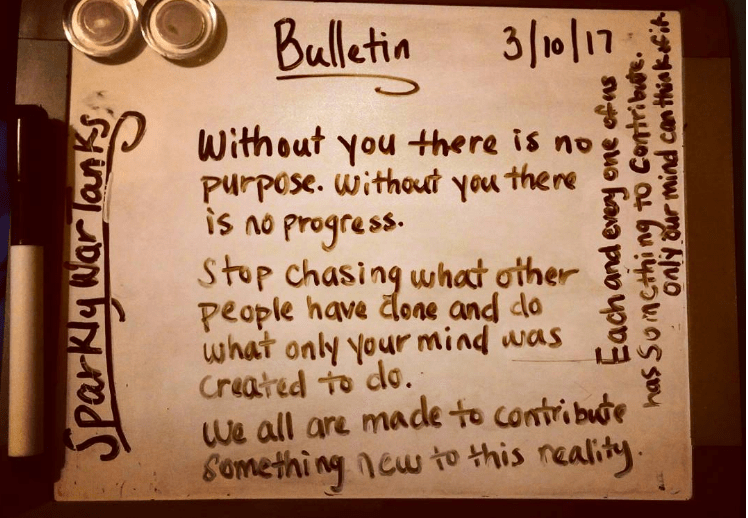 Bulletin
3/10/17
Sparkly War Tanks
Without you there is no
purpose. Without you there
is no progress.
Stop chasing what other
people have done and do
what only your mind was
created to do.
We all are made to contribute
something new to this reality.
Each and every one of us
has something to contribute.
only our mind can think of it.